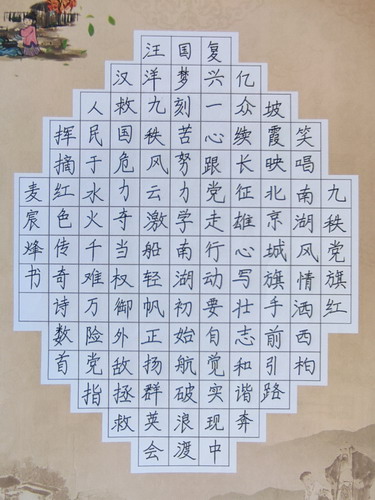 九秩党旗红
笑唱南湖风情洒西柏
坡霞映北京城旗手前引路
亿众续长征雄心写壮志和谐奔
复兴一心跟党走行动要自觉实现中
国梦刻苦努力学南湖初始航破浪渡
汪洋九秩风云激船轻帆正扬群英会
汉救国危力奇当权御外敌拯救
人民于水火千难万险党指
挥摘红色传奇诗数首
麦宸烽书